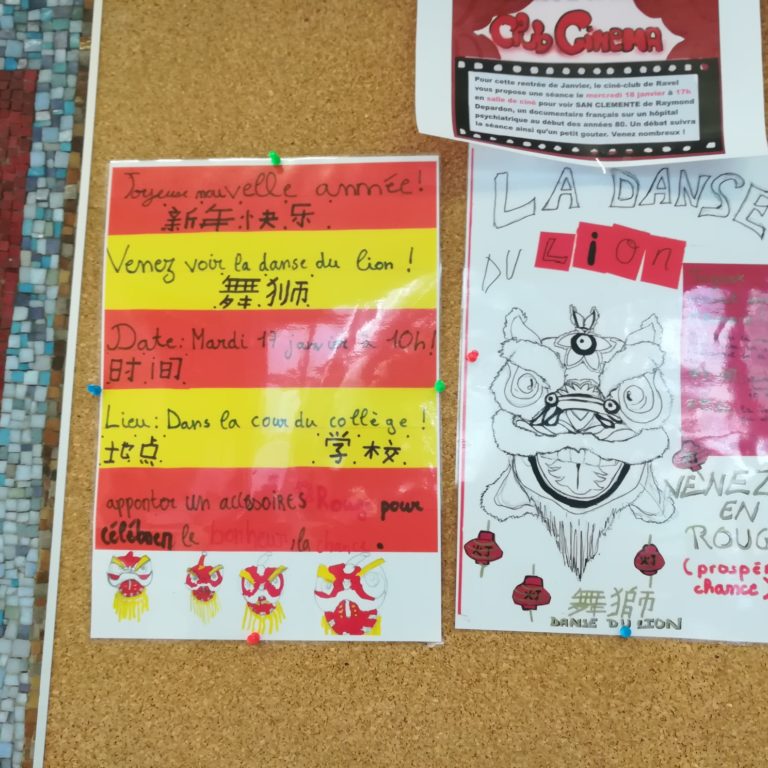 Club Cinema
Pour cette rentrée de Janvier, le ciné-club de Ravel
vous propose une séance le mercredi 18 janvier à 17h
en salle de ciné pour voir SAN CLEMENTE de Raymond
Depardon, un documentaire français sur un hôpital
psychiatrique au début des années 80. Un débat suivra
la séance ainsi qu'un petit gouter. Venez nombreux !
Joyeuse nouvelle année !
新年快乐
Venez voir la danse du lion !
舞狮
Date : Mardi 17 janvier à 10h!
时间
Lieu : Dans la cour du collège !
地点 学校
apporter un accessoires Rouge pour
célébrer le bonheur, la chance.
LA DANSE
DU Lion
VENEZ
EN
ROUG
(prospé
chance)
灯
灯
灯
舞獅
DANSE DU LION